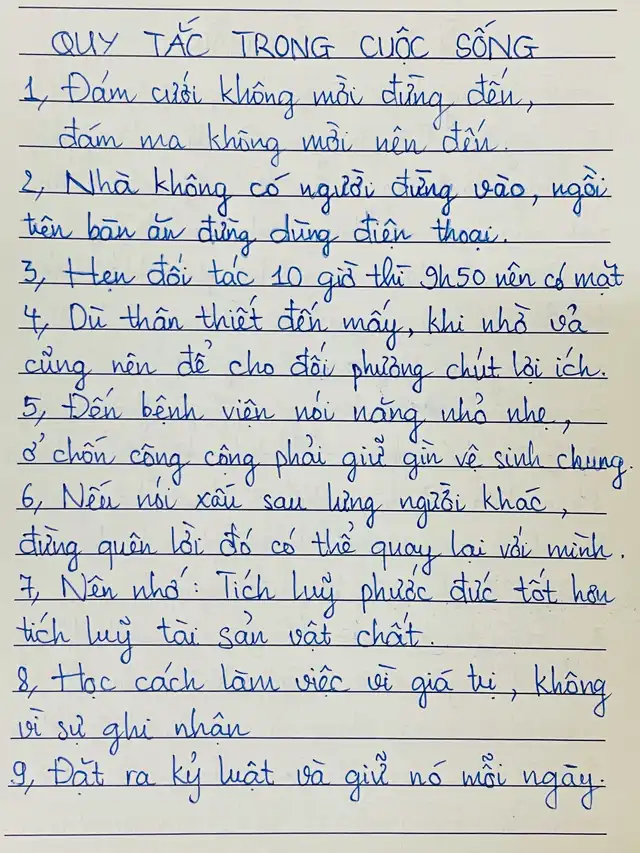 QUY TẮC TRONG CUỘC SỐNG
1, Đám cưới không mời đừng đến,
đám ma không mời nên đến.
2, Nhà không có người đừng vào, ngồi
trên bàn ăn đừng dùng điện thoại.
3, Hẹn đối tác 10 giờ thì 9h50 nên có mặt
4, Dù thân thiết đến mấy, khi nhờ vả
cũng nên để cho đối phương chút lợi ích.
5, Đến bệnh viện nói năng nhỏ nhẹ,
ở chốn công cộng phải giữ gìn vệ sinh chung.
6, Nếu nói xấu sau lưng người khác,
đừng quên lời đó có thể quay lại với mình.
7, Nên nhớ: Tích luỹ phước đức tốt hơn
tích luỹ tài sản vật chất.
8, Học cách làm việc vì giá trị, không
vì sự ghi nhận
9, Đặt ra kỷ luật và giữ nó mỗi ngày.